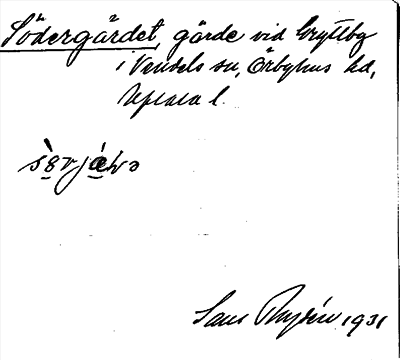 Södergärdet, gärde vid Gryttby
i Vendels sn, Örbyhus hd,
Uppsala l.
Sans Rydin 1931